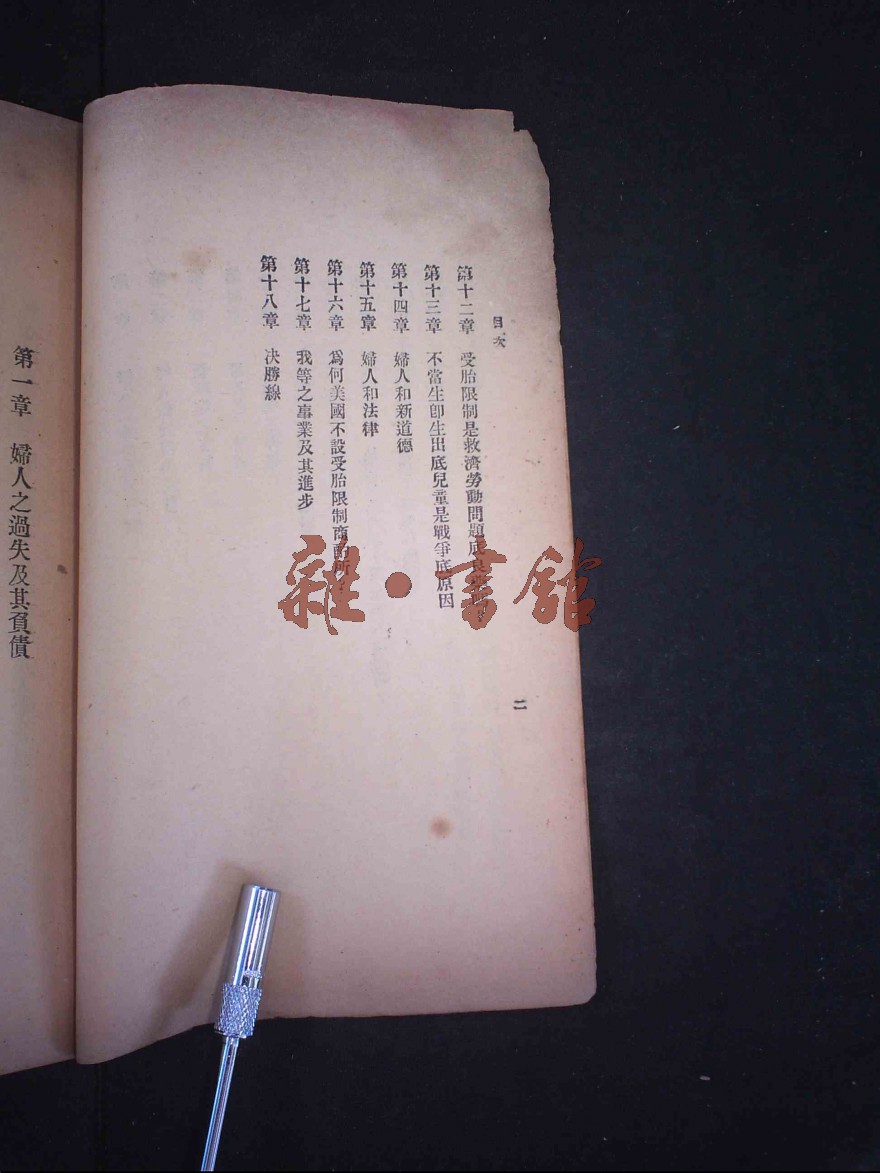 目次
第十二章 受胎限制是救濟勞動問題底良
第十三章 不當生卽生出底兒童是戰爭底原因
第十四章 婦人和新道德
第十五章 婦人和法律
第十六章 爲何美國不設受胎限制商酌所
第十七章 我等之事業及其進步
第十八章 決勝線
二
第一章 婦人之過失及其負債
雜·書館